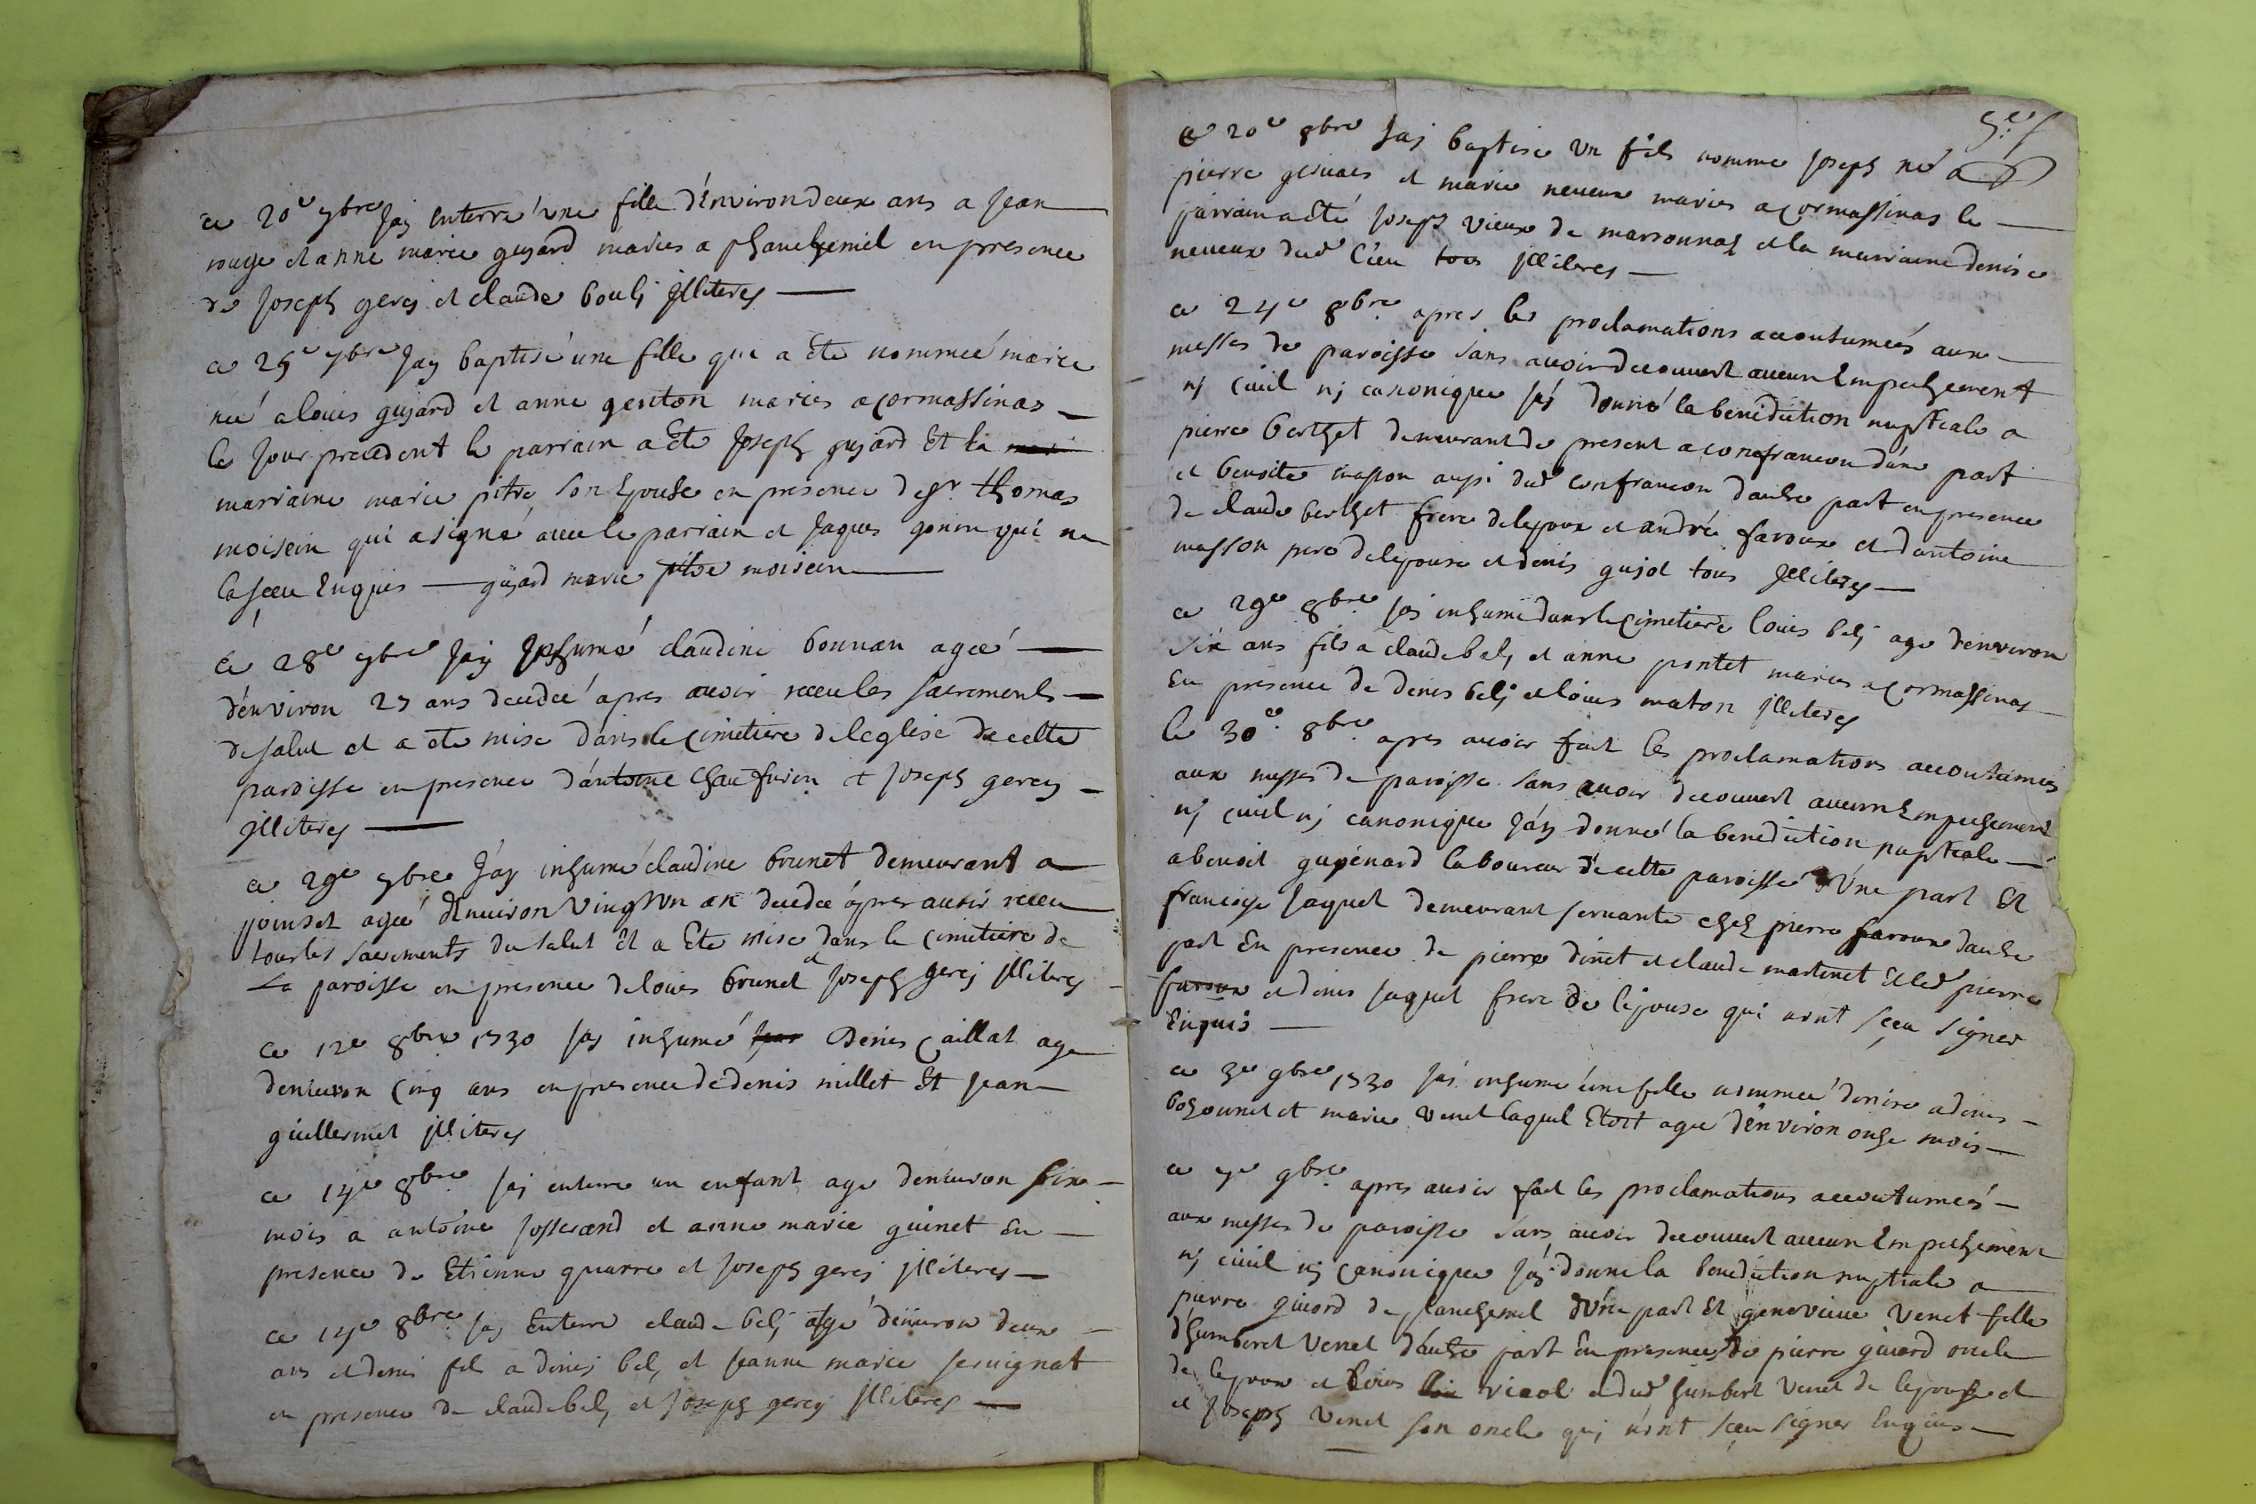 ce 20e 7bre Jay Enterré une fille d'Environ deux ans a Jean
rouge et anne marie guyard mariés a planchemel en presence
de Joseph gerey et claude bouly Jlliteres
ce 25e 7bre Jay baptisé une fille qui a été nommeé marie
neé a louis guyard et anne genton mariés a cormassinas
le Jour precedent le parrain a été Joseph guyard Et la
marraine marie pitre son Epouse en presence de sr thomas
moisein qui a signé avec le parrain et Jaques gonin qui ne
la sceu Enquis guyard marie pitre moisein
ce 28e 7bre Jay Jnhumé claudine bonnan ageé
d'environ 27 ans decedeé apres avoir receu les sacrements
de salut et a eté mise dans le cimetiere de leglise de cette
paroisse en presence d'antoine Chaufurin et Joseph gerey
Jlliteres
ce 29e 7bre Jay inhumé claudine brunet demeurant a
ponset ageé d'Environ Vingt Un an decedeé apres avoir receu
tous les sacrements du salut Et a Eté mise dans le cimetiere de
La paroisse en presence de louis brunet et Joseph gerey Jlliteres
ce 12e 8bre 1730 Jay inhumé Denis Caillat age
denviron Cinq ans en presence de denis millet Et Jean
guillermet Jlliteres
ce 14e 8bre Jay enterre un enfant age denviron Six
mois a antoine Josserand et anne marie guinet En
presence de Etienne quarre et Joseph gerey Jlliteres
ce 14e 8bre Jay Enterre claude bely agé denviron deux
ans et demi fil a denis bely et Jeanne marie servignat
en presence de claude bely et Joseph gerey Jlliteres
5e f
ce 20e 8bre Jay baptisé un fils nommé Joseph né a
pierre gervais et marie neveux mariés a cormassinas le
parrain a eté Joseph vieux de marsonnas et la marraine denise
neveux dud lieu tous Jlliteres
ce 24e 8bre apres les proclamations accoutumeés aux
messes de paroisse sans avoir decouvert aucun Empechement
ny civil ny canonique Jay donné la benediction nuptiale a
pierre berthet demeurant de present a confrancon d'une part
et benoite masson aussi dud confrancon dautre part en presence
de claude berthet frere de lepoux et andré faroux et dantoine
masson pere de lepouse et denis gujot tous Jlliteres
ce 29e 8bre Jay inhumé dans le cimetiere louis bely age denviron
six ans fils a claude bely et anne pontet mariés a cormassinas
En presence de denis bely et louis maton Jlliteres
le 30e 8bre apres avoir fait les proclamations accoutumées
aux messes de paroisse sans avoir decouvert aucun Empechement
ny civil ny canonique Jay donné la benediction nuptiale
a benoit guyenard laboureur de cette paroisse d'Une part Et
francoise Jaquet demeurant servante chez pierre faroux dautre
part En presence de pierre dinet et claude martinet Et led pierre
faroux et denis Jaquet frere de l'epouse qui n'ont sceu signer
Enquis
ce 3e 9bre 1730 Jay inhumé une fille nommeé denise a denis
bohounet et marie venet laquel Etoit ageé d'environ onze mois
ce 7e 9bre apres avoir fait les proclamations accoutumeés
aux messes de paroisse sans avoir decouvert aucun Empechement
ny civil ny canonique Jay donne la benediction nuptiale a
pierre guiord de planchemel d'Une part Et genevieve venet fille
d'humbert venet d'autre part En presence de pierre guiord oncle
de lepoux et louis vieol et dud humbert venet de lepouse et
et Joseph venet son oncle qui n'ont sceu signer Enquis